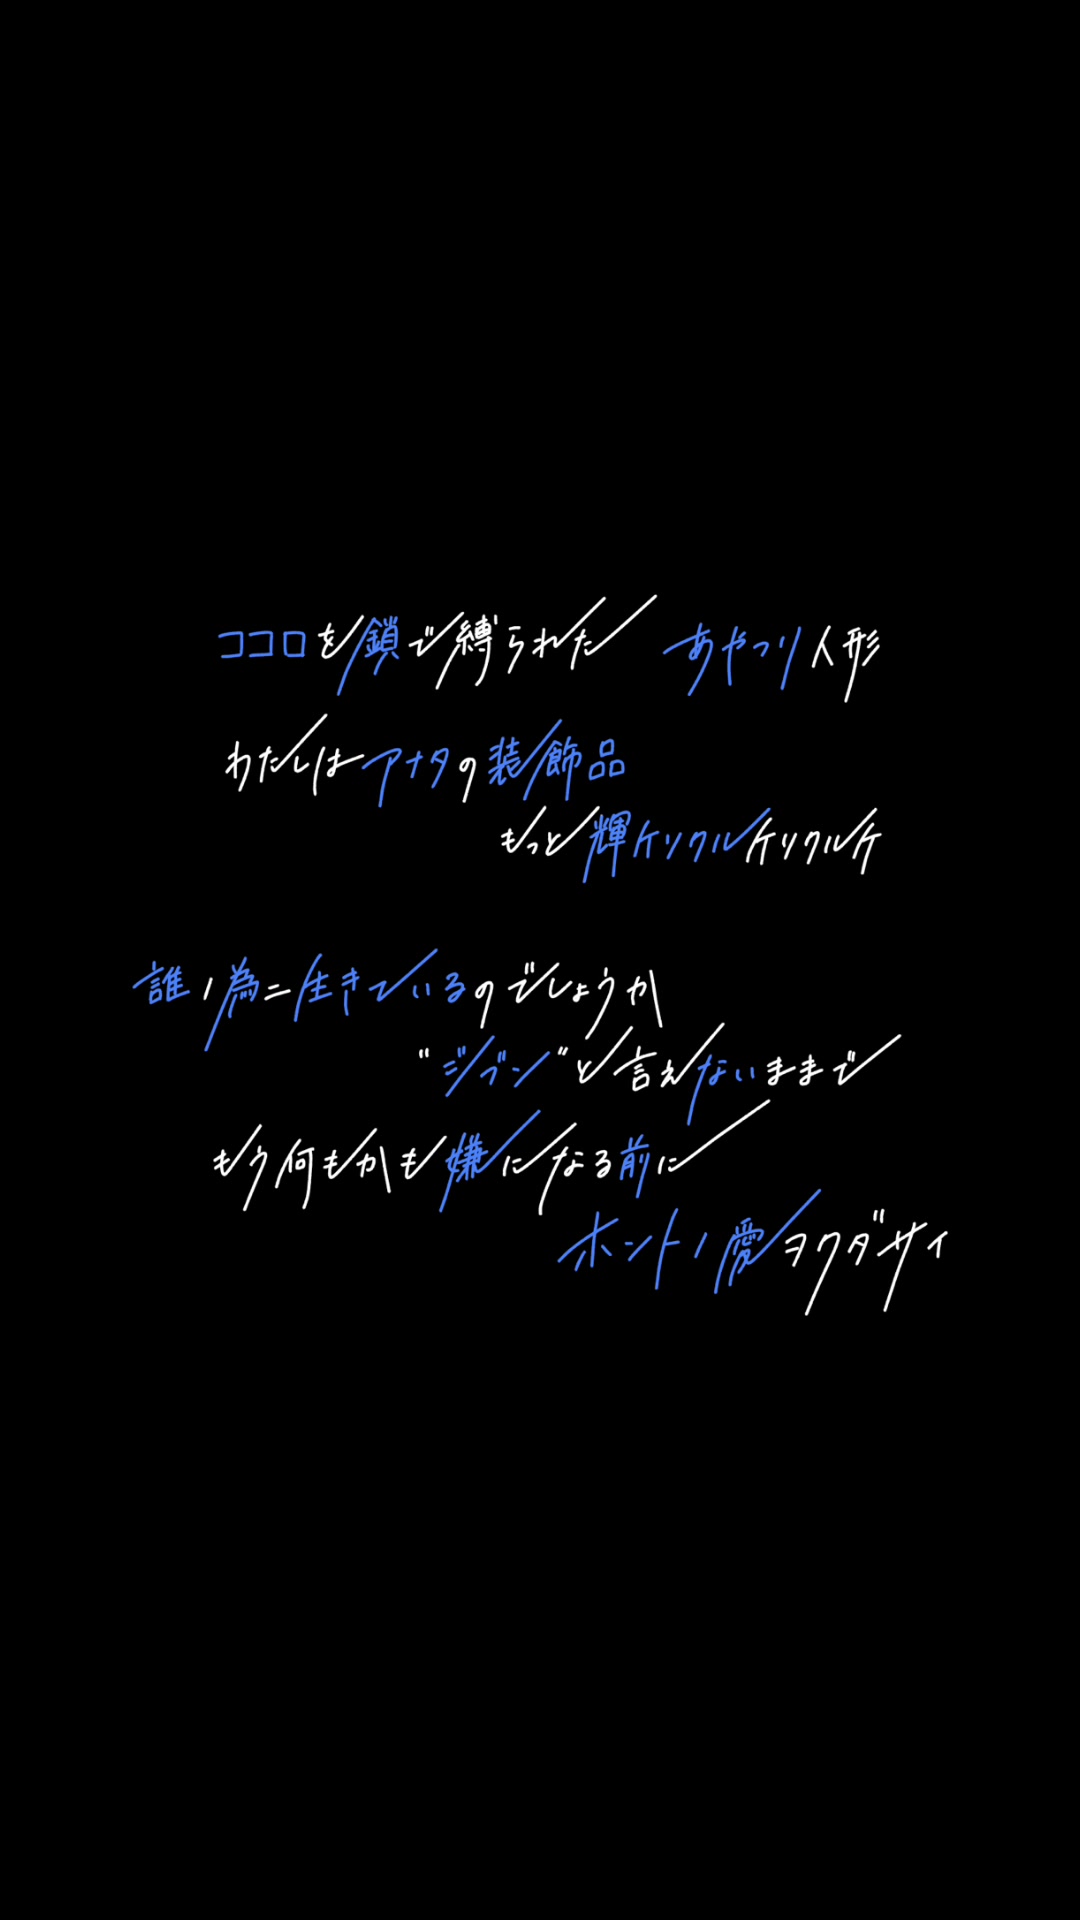 ココロを鎖で縛られた　あやつり人形
わたしはアナタの装飾品
もっと輝ケソクルルケリクルケ
誰ノ為ニ生きているのでしょうか
"ジブン"と言えないままで
もう何もかも嫌になる前に
ホントノ愛ヲクダサイ